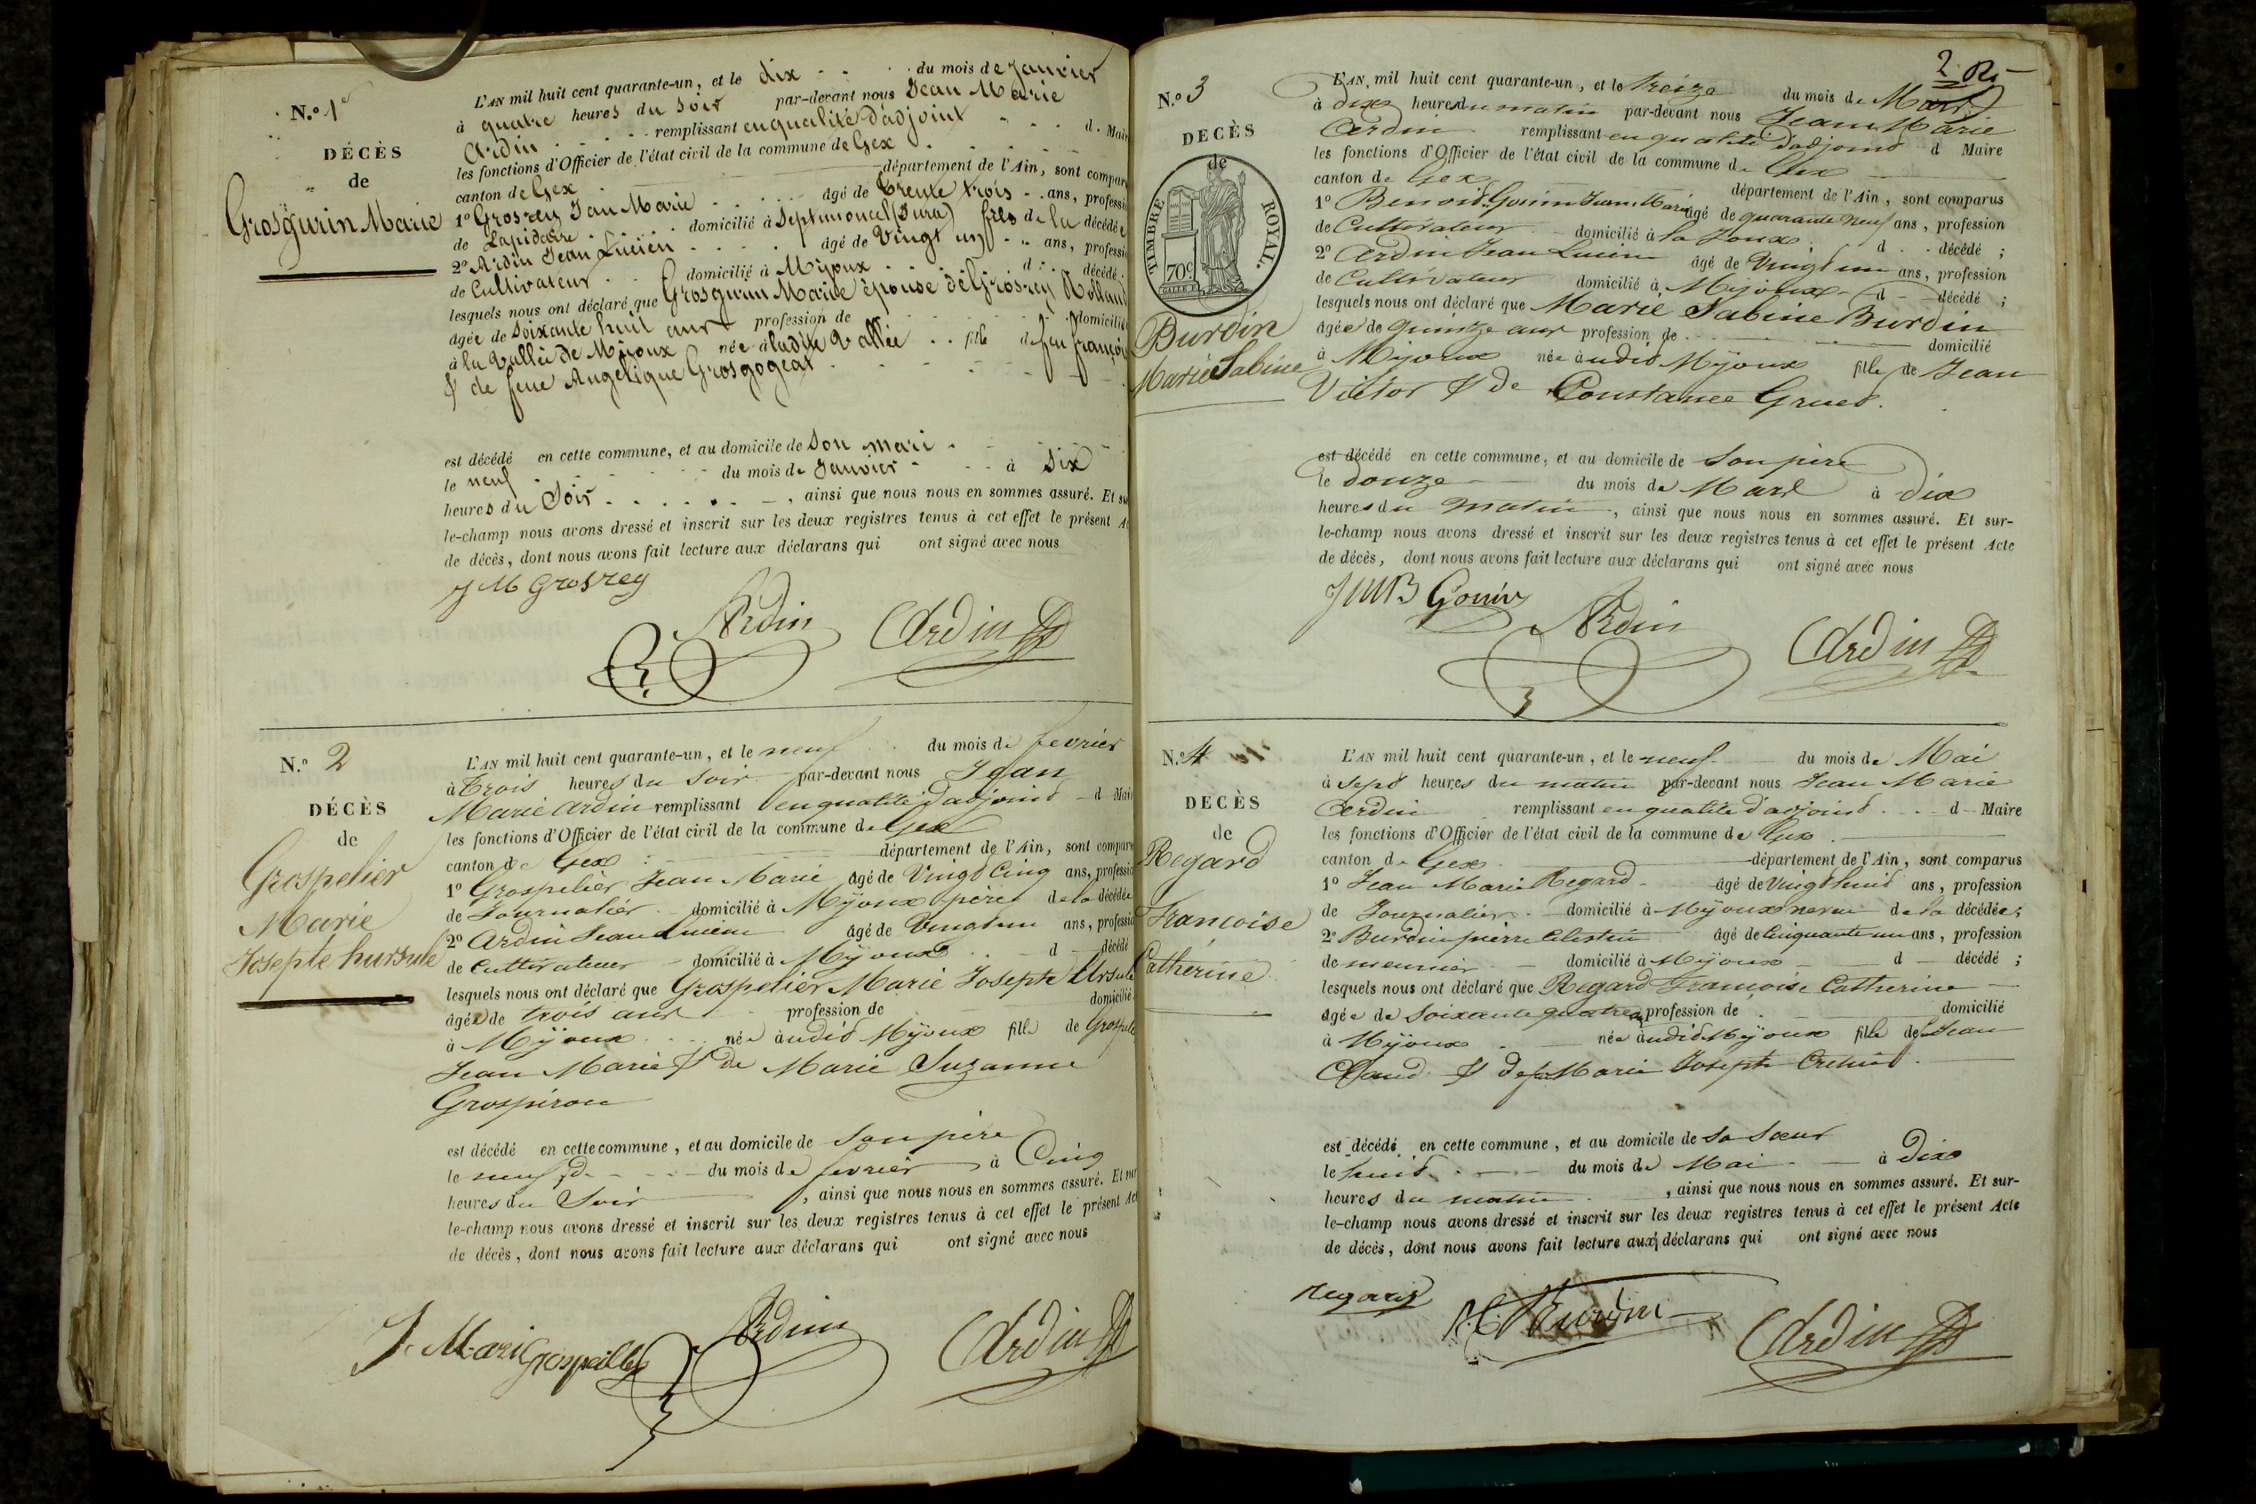 N.º 1er
DÉCÈS
de
Grosgurin Marie
L'AN mil huit cent quarante-un, et le dix du mois de Janvier
à quatre heures du Soir par-devant nous Jean Marie
Ardin remplissant en qualité d'adjoint d. Mair
les fonctions d'Officier de l'état civil de la commune de Gex
canton de Gex département de l'Ain, sont compar
1º Grosrey Jean Marie âgé de trente trois ans, professi
de Lapidaire domicilié à Septmoncel (Jura) fils de la décédée
2º Ardin Jean Lucien âgé de Vingt un ans, professi
de Cultivateur domicilié à Mijoux d décédé.
lesquels nous ont déclaré que Grosgurin Marie épouse de Grosrey Rolland
âgée de Soixante huit ans profession de domicilié
à la Vallée de Mijoux née à ladite Vallée fille de feu françois
& de feue Angélique Grosgogeat
est décédé en cette commune, et au domicile de Son mari
le neuf du mois de Janvier à Six
heures du Soir, ainsi que nous nous en sommes assuré. Et su
le-champ nous avons dressé et inscrit sur les deux registres tenus à cet effet le présent A
de décès, dont nous avons fait lecture aux déclarans qui ont signé avec nous
J M Grosrey
Ardin Ardin
N.º 2
DÉCÈS
de
Grospelier
Marie
Josepte hursule
L'AN mil huit cent quarante-un, et le neuf du mois de fevrier
à Trois heures du Soir par-devant nous Jean
Marie Ardin remplissant en qualité d'adjoint d Mair
les fonctions d'Officier de l'état civil de la commune de Gex
canton de Gex département de l'Ain, sont compar
1º Grospelier Jean Marie âgé de Vingt Cinq ans, professi
de Journalier domicilié à Mijoux père de la décédée
2º Ardin Jean Lucien âgé de Vingt un ans, professi
de Cultivateur domicilié à Mijoux d décédé
lesquels nous ont déclaré que Grospelier Marie Josepte Ursule
âgée de trois ans profession de domicilié
à Mijoux née à udit Mijoux fille de Grospelie
Jean Marie & de Marie Suzanne
Grospiron
est décédé en cette commune, et au domicile de Son père
le neuf de du mois de fevrier à Cinq
heures du Soir, ainsi que nous nous en sommes assuré. Et sur
le-champ nous avons dressé et inscrit sur les deux registres tenus à cet effet le présent Act
de décès, dont nous avons fait lecture aux déclarans qui ont signé avec nous
J. Marie grospeiller
Ardin Ardin
2
N.º 3
DECÈS
de
TIMBRE ROYAL.
70c
Burdin
Marie Sabine
L'AN mil huit cent quarante-un, et le treize du mois de Mars
à dix heures du matin par-devant nous Jean Marie
Ardin remplissant en qualité d'adjoint d Maire
les fonctions d'Officier de l'état civil de la commune de Gex
canton de Gex département de l'Ain, sont comparus
1º Benoit Gonin Jean Marie âgé de quarante neuf ans, profession
de Cultivateur domicilié à la Joux d décédé;
2º Ardin Jean Lucien âgé de Vingt un ans, profession
de Cultivateur domicilié à Mijoux d décédé;
lesquels nous ont déclaré que Marie Sabine Burdin
âgée de quinze ans profession de domicilié
à Mijoux née à udit Mijoux fille de Jean
Victor & de Constance Gruet.
est décédé en cette commune, et au domicile de Son père
le douze du mois de Mars à dix
heures du matin, ainsi que nous nous en sommes assuré. Et sur-
le-champ nous avons dressé et inscrit sur les deux registres tenus à cet effet le présent Acte
de décès, dont nous avons fait lecture aux déclarans qui ont signé avec nous
JMB Gonin
Ardin Ardin
N.º 4
DECÈS
de
Regard
Francoise
Catherine
L'AN mil huit cent quarante-un, et le neuf du mois de Mai
à sept heures du matin par-devant nous Jean Marie
Ardin remplissant en qualité d'adjoint d Maire
les fonctions d'Officier de l'état civil de la commune de Gex
canton de Gex département de l'Ain, sont comparus
1º Jean Marie Regard âgé de Vingt huit ans, profession
de Journalier domicilié à Mijoux neveu de la décédée;
2º Burdin pierre Celestin âgé de Cinquante un ans, profession
de meunier domicilié à Mijoux d décédé;
lesquels nous ont déclaré que Regard Francoise Catherine
âgée de Soixante quatre ans profession de domicilié
à Mijoux née à udit Mijoux fille de Jean
Claud & de Marie Josepte
est décédé en cette commune, et au domicile de Sa Sœur
le huit du mois de Mai à dix
heures du matin, ainsi que nous nous en sommes assuré. Et sur-
le-champ nous avons dressé et inscrit sur les deux registres tenus à cet effet le présent Acte
de décès, dont nous avons fait lecture aux déclarans qui ont signé avec nous
Regard
Burdin
Ardin